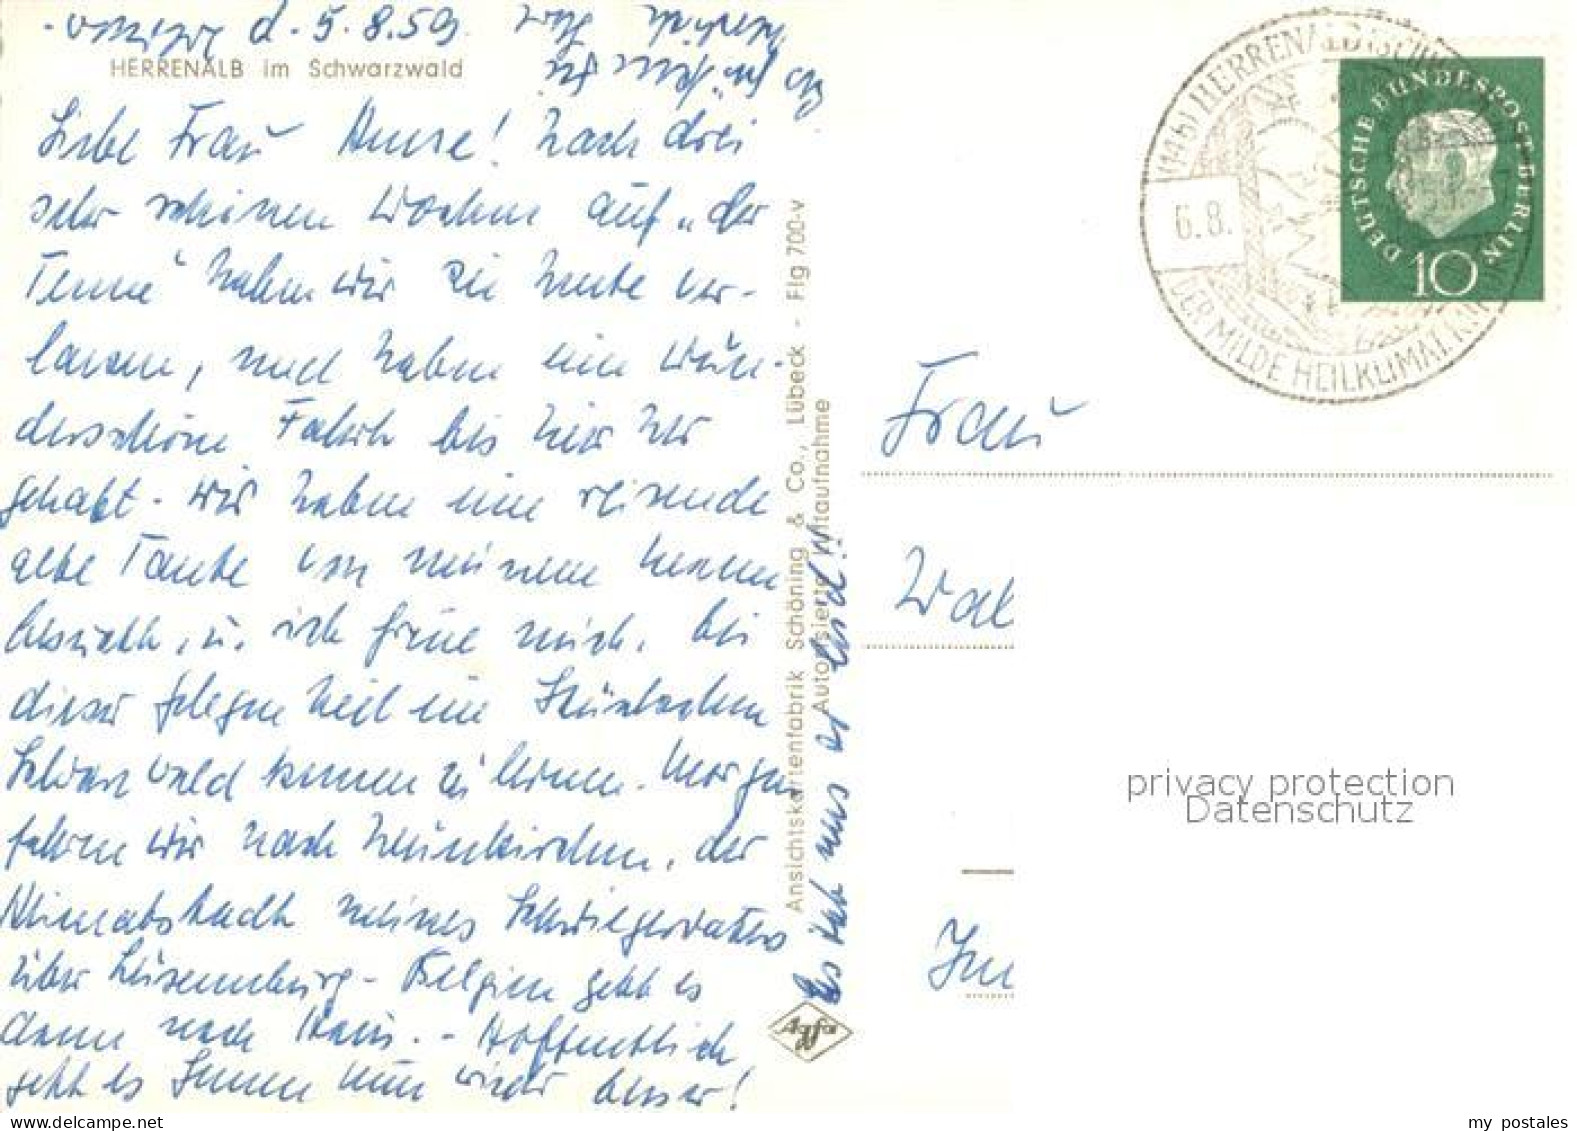 d. 5.8.59.
HERRENALB im Schwarzwald
Liebe Frau Hense! Nach drei
sehr schönen Wochen auf „der
Tenne“ haben wir sie heute ver-
lassen, und haben eine wun-
derschöne Fahrt bis hier her
gehabt. Wir haben eine reisende
alte Tante von meinem Mann
besucht, u. ich freue mich, bei
dieser Gelegenheit ein Stückchen
Schwarzwald kennen zu lernen. Morgen
fahren wir nach Neunkirchen, der
Heimatstadt meines Schwiegervaters
über Luxemburg - Belgien geht es
dann nach Haus. - Hoffentlich
geht es Ihnen nun wieder besser!
Es hat uns so
Ansichtskartenfabrik Schöning & Co., Lübeck - Flg 700-v
Autorisierte Luftaufnahme
Agfa
(14b) HERRENALB (SCHW
6.8.
DER MILDE HEILKLIMAT. KUR
DEUTSCHE BUNDESPOST BERLIN
10
Frau
Wal
Im
privacy protection
Datenschutz
www.delcampe.net
my_postales